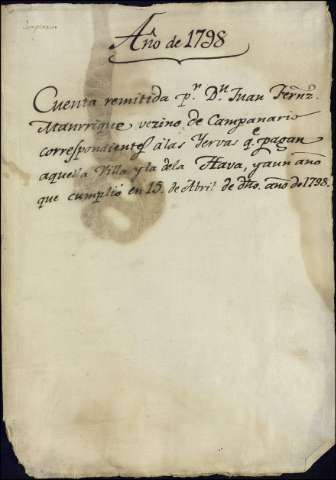 Campanario
Año de 1798
Cuenta remitida pr. Dn. Juan Fernz.
Manrrique vezino de Campanario
correspondiente â las Yervas qe. pagan
aquella Villa, y la dela Hava, y aun año
que cumplió en 15. de Abril de dho. año de 1798.